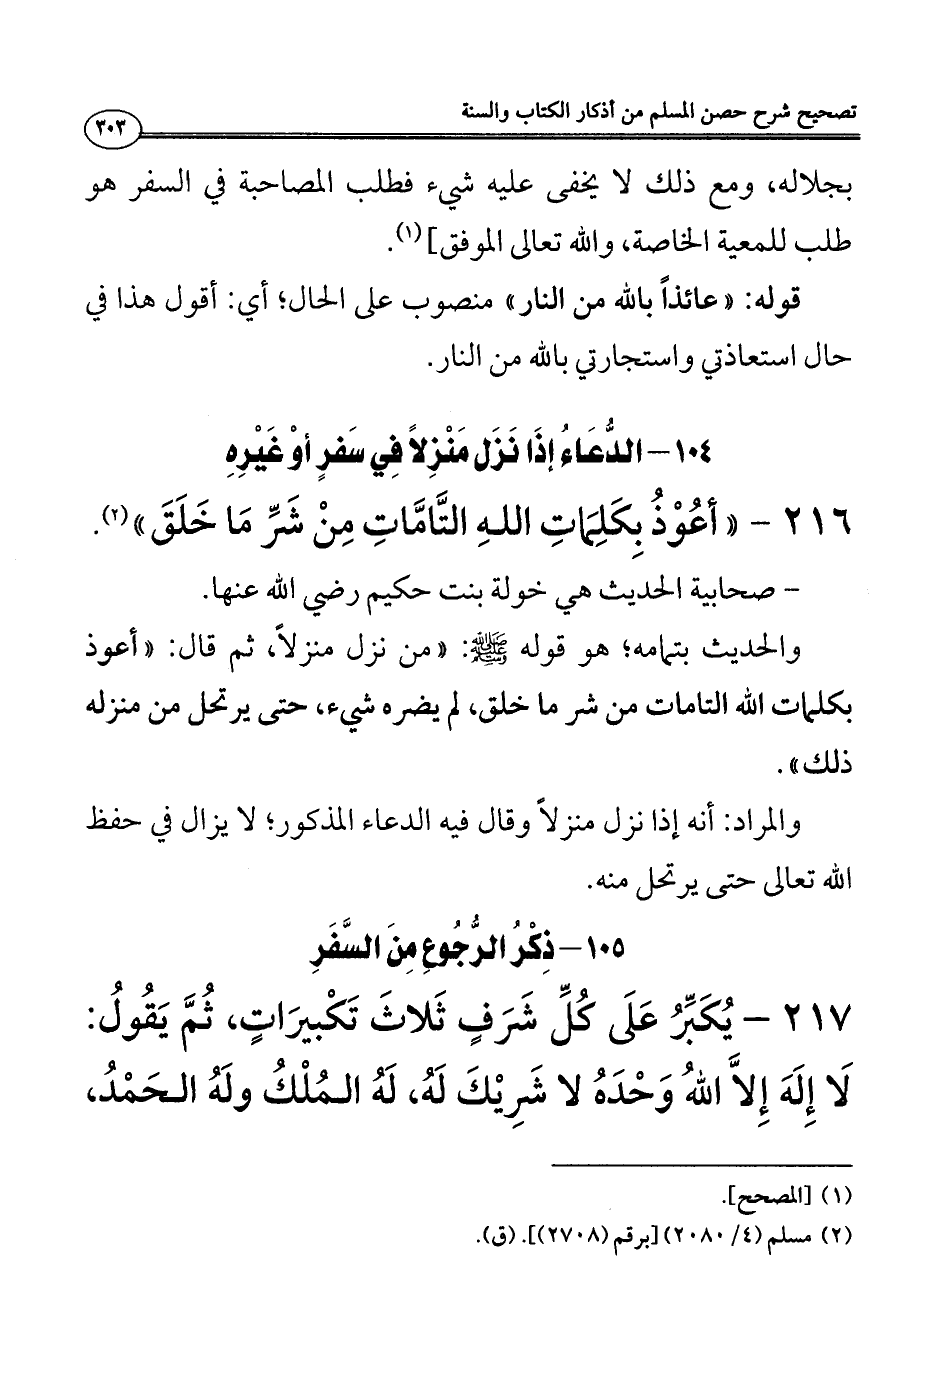 تصحيح شرح حصن المسلم من أذكار الكتاب والسنة
٣٠٣
بجلاله، ومع ذلك لا يخفى عليه شيء فطلب المصاحبة في السفر هو
طلب للمعية الخاصة، والله تعالى الموفق](١).
قوله: «عائذاً بالله من النار» منصوب على الحال؛ أي: أقول هذا في
حال استعاذتي واستجارتي بالله من النار.
١٠٤- الدُّعَاءُ إذَا نَزَل مَنْزِلاً فِي سَفرٍ أوْ غَيْرِهِ
٢١٦ - «أَعُوْذُ بِكَلِمَاتِ اللهِ التَّامَّاتِ مِنْ شَرِّ مَا خَلَقَ»(٢).
- صحابية الحديث هي خولة بنت حكيم رضي الله عنها.
والحديث بتمامه؛ هو قوله ﷺ: «من نزل منزلاً، ثم قال: «أعوذ
بكلمات الله التامات من شر ما خلق، لم يضره شيء، حتى يرتحل من منزله
ذلك».
والمراد: أنه إذا نزل منزلاً وقال فيه الدعاء المذكور؛ لا يزال في حفظ
الله تعالى حتى يرتحل منه.
١٠٥- ذِكْرُ الرُّجُوعِ مِنَ السَّفَرِ
٢١٧ - يُكَبِّرُ عَلَى كُلِّ شَرَفٍ ثَلاثَ تَكْبِيرَاتٍ، ثُمَّ يَقُولُ:
لَا إِلَهَ إِلاَّ اللهُ وَحْدَهُ لا شَرِيْكَ لَهُ، لَهُ المُلْكُ ولَهُ الحَمْدُ،
(١) [المصحح].
(٢) مسلم (٤/ ٢٠٨٠) [برقم (٢٧٠٨)]. (ق).